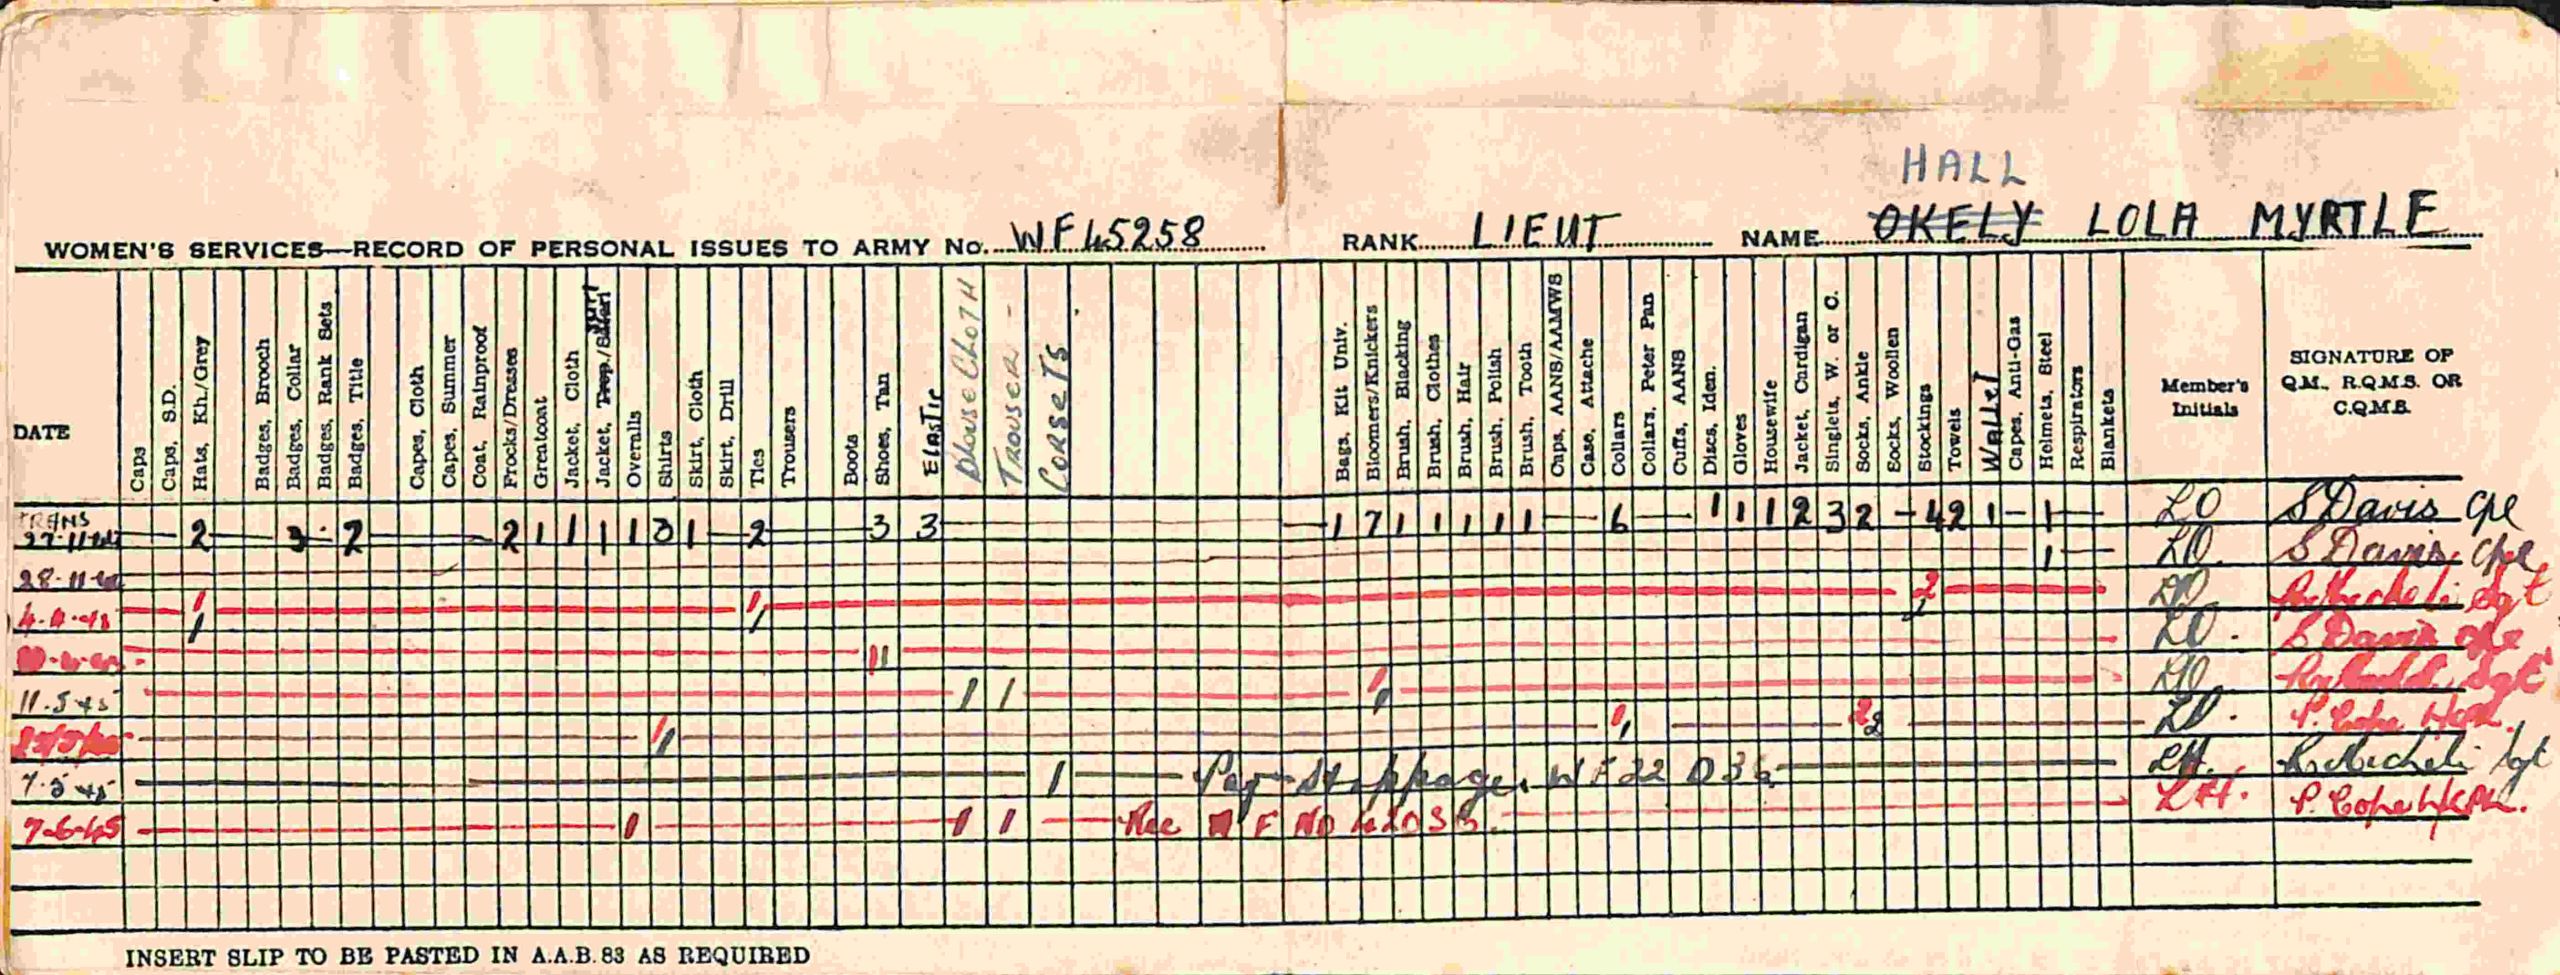 HALL
WOMEN'S SERVICES—RECORD OF PERSONAL ISSUES TO ARMY No. WF45258 RANK LIEUT NAME OKELY LOLA MYRTLE
DATE
Caps
Caps, S.D.
Hats, Kh./Grey
Badges, Brooch
Badges, Collar
Badges, Rank Sets
Badges, Title
Capes, Cloth
Capes, Summer
Coat, Rainproof
Frocks/Dresses
Greatcoat
Jacket, Cloth
Jacket, Trop./Safari
Overalls
Shirts
Skirt, Cloth
Skirt, Drill
Ties
Trousers
Boots
Shoes, Tan
Elastic
Blouse Cloth
Trouser -
Corsets
Bags, Kit Univ.
Bloomers/Knickers
Brush, Blacking
Brush, Clothes
Brush, Hair
Brush, Polish
Brush, Tooth
Caps, AANS/AAMWS
Case, Attache
Collars
Collars, Peter Pan
Cuffs, AANS
Discs, Iden.
Gloves
Housewife
Jacket, Cardigan
Singlets, W. or C.
Socks, Ankle
Socks, Woollen
Stockings
Towels
Wallet
Capes, Anti-Gas
Helmets, Steel
Respirators
Blankets
Member's Initials
SIGNATURE OF Q.M., R.Q.M.S. OR C.Q.M.S.
TRANS
2 3 2 2 1 1 1 1 3 1 2 3 3 1 7 1 1 1 1 1 6 1 1 1 2 3 2 4 2 1 1 LO S Davis Cpl
28-11- 1 LO. S Davis Cpl
1 1 2 LO Sgt
1 1 LO. S Davis Cpl
11
11.5.45 1 1 1 1 LO Sgt
1 1 1 1 2 2 LO. P. Cope
7.5.45 1 Pay Stoppage. WF22 LH. R Micheli Sgt
7-6-45 1 1 1 Rec LH. P. Cope
INSERT SLIP TO BE PASTED IN A.A.B. 83 AS REQUIRED